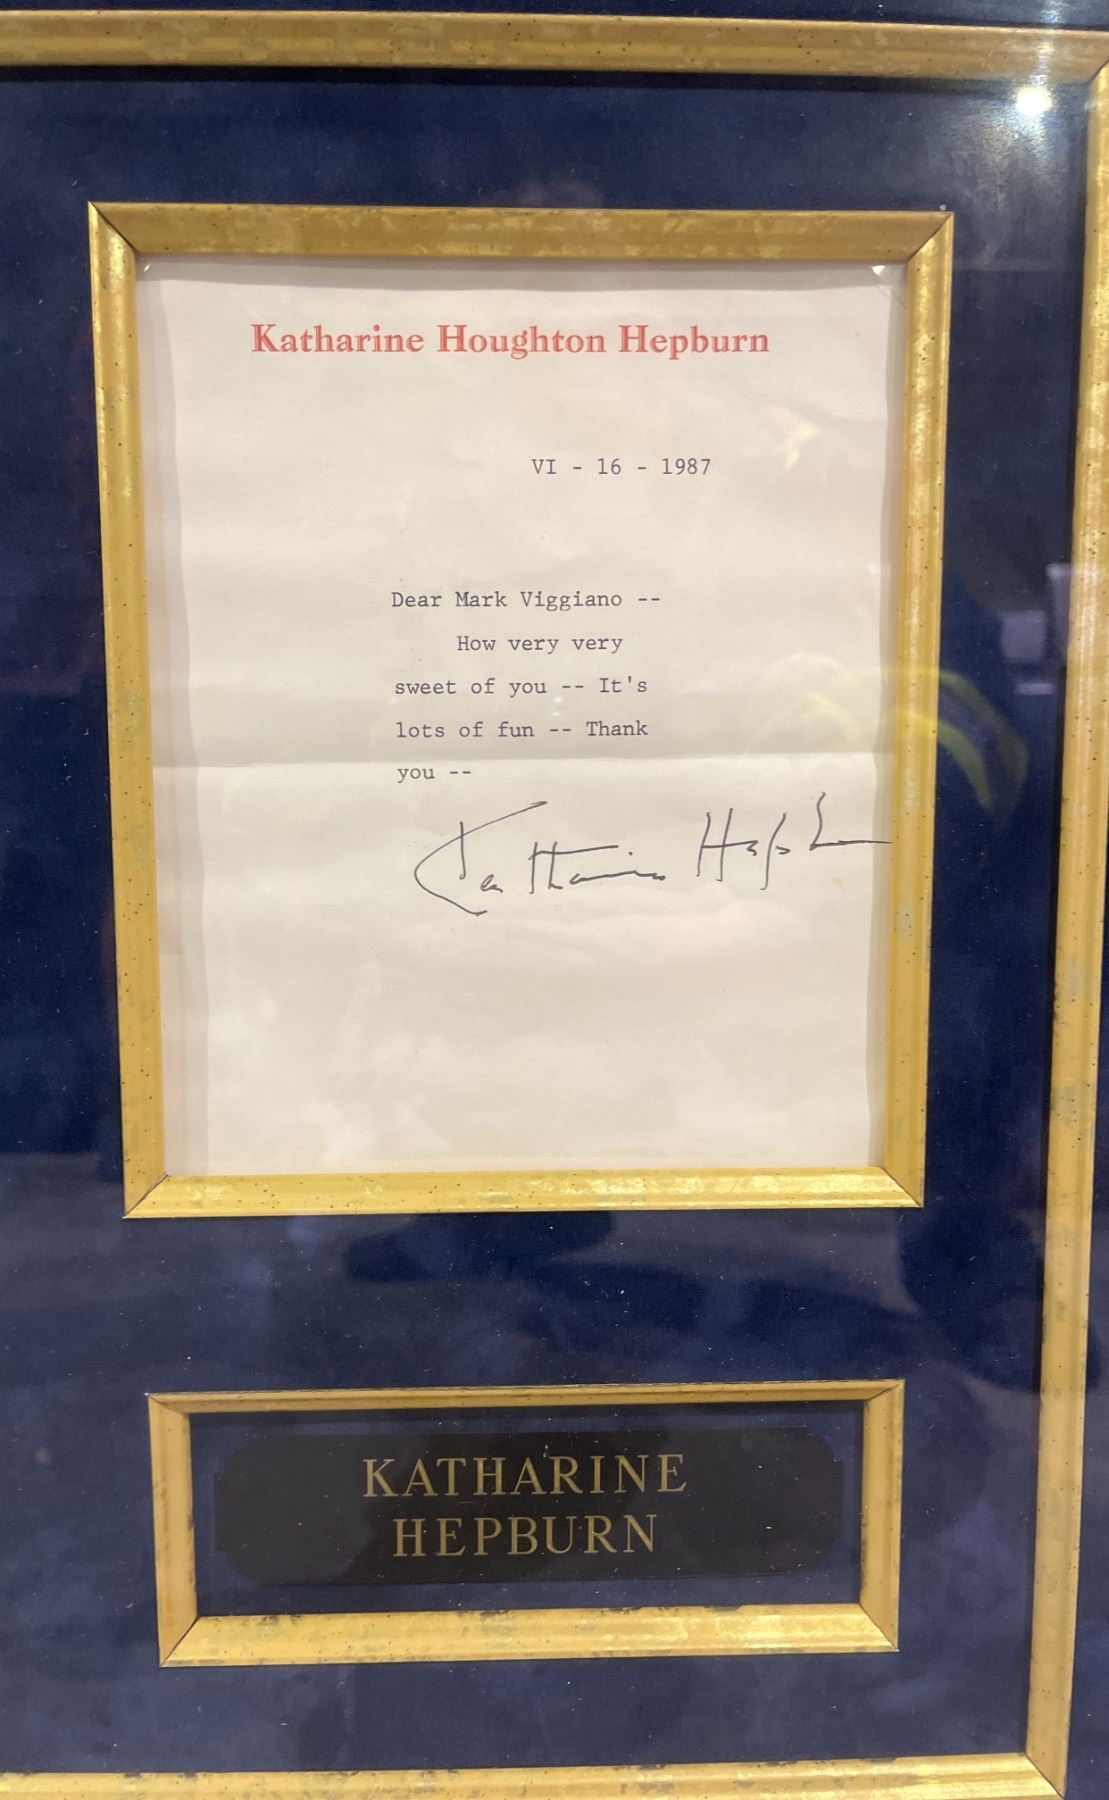 Katharine Houghton Hepburn
VI - 16 - 1987
Dear Mark Viggiano --
How very very
sweet of you -- It's
lots of fun -- Thank
you --
Katharine Hepburn
KATHARINE
HEPBURN